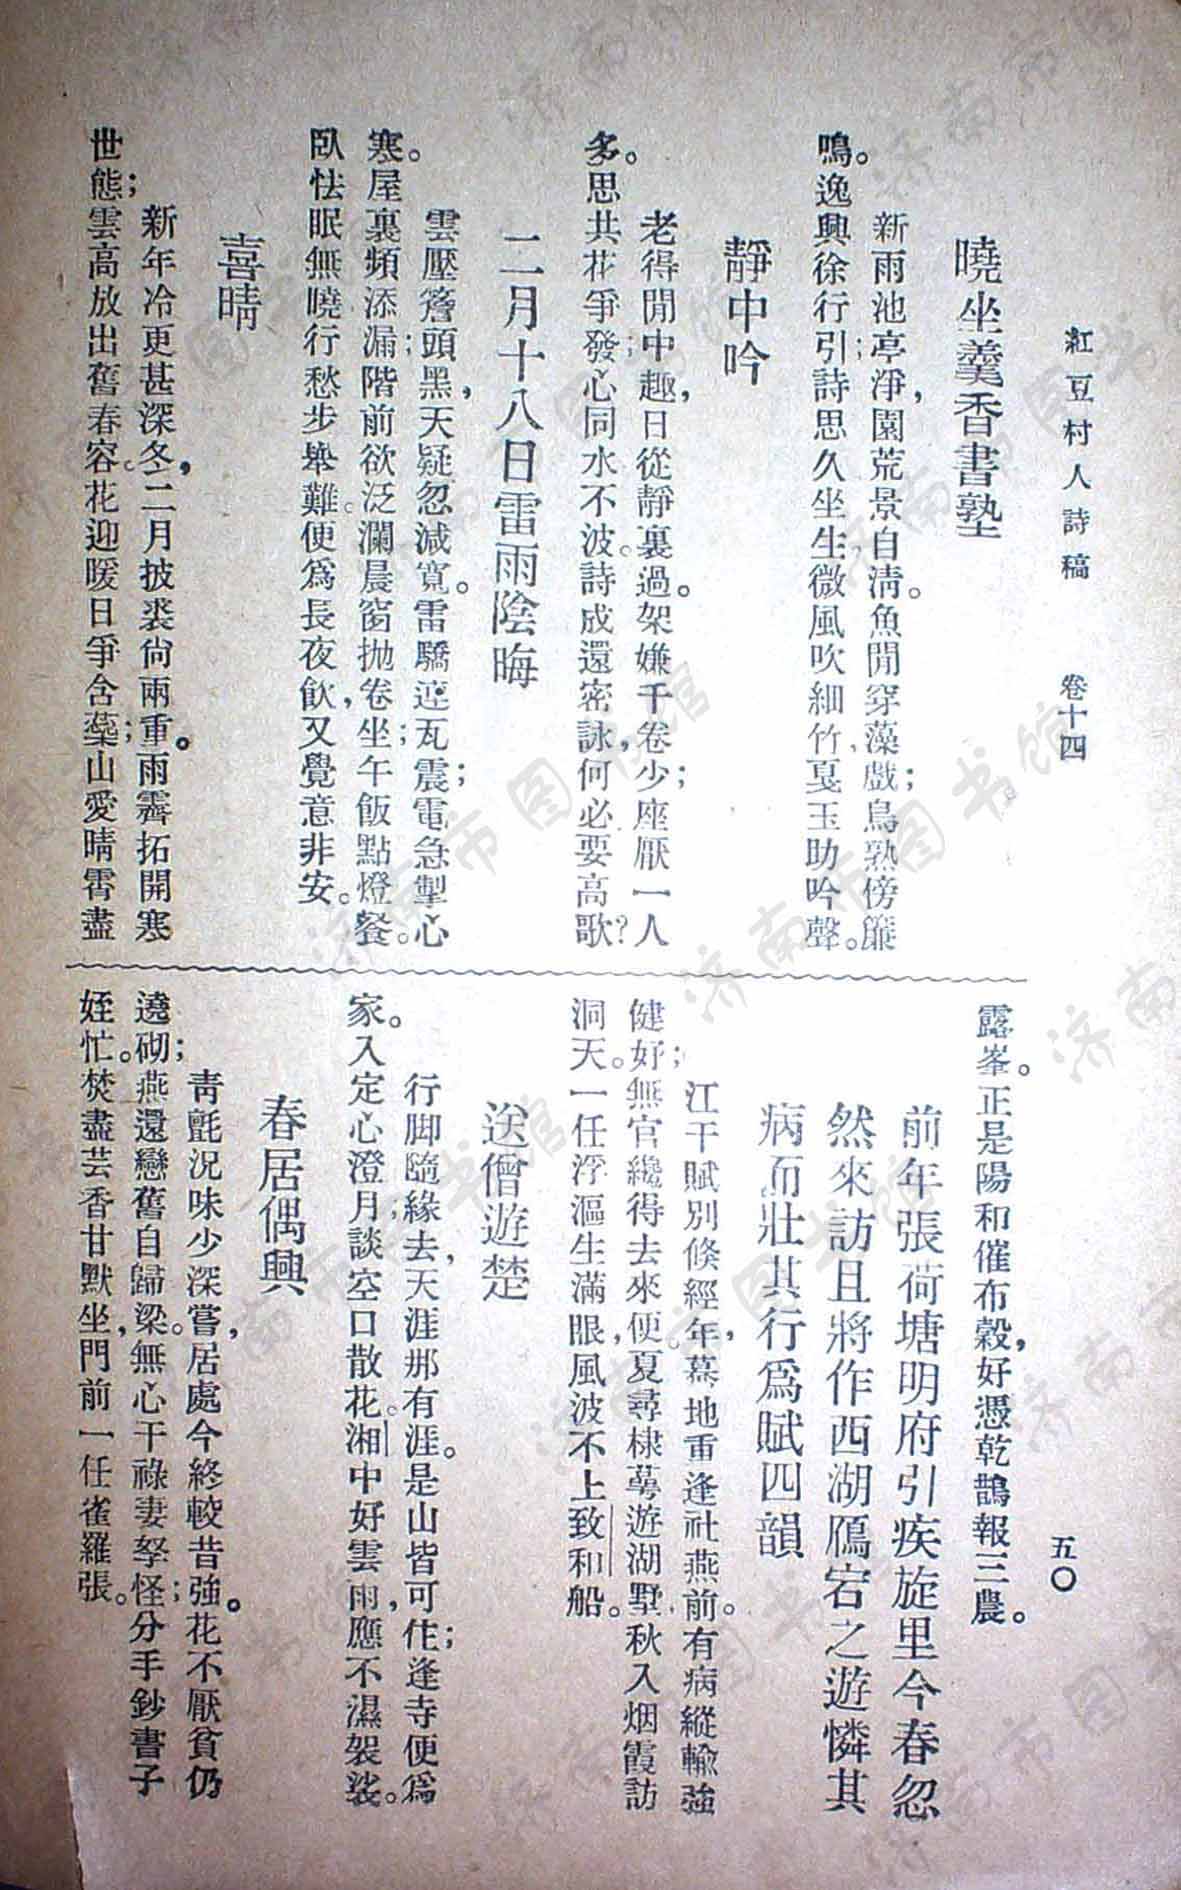 紅豆村人詩稿　卷十四　五〇
曉坐羹香書塾
新雨池亭淨，園荒景自清。魚閒穿藻戲；鳥熟傍簾
鳴。逸興徐行引；詩思久坐生。微風吹細竹，戛玉助吟聲。
靜中吟
老得閒中趣，日從靜裏過。架嫌千卷少；座厭一人
多。思共花爭發；心同水不波。詩成還密詠，何必要高歌？
二月十八日雷雨陰晦
雲壓簷頭黑，天疑忽減寬。雷驕迸瓦震；電急掣心
寒。屋裏頻添漏；階前欲泛瀾。晨窗抛卷坐；午飯點燈餐。
臥怯眠無曉，行愁步舉難。便爲長夜飲，又覺意非安。
喜晴
新年冷更甚深冬，二月披裘尙兩重。雨霽拓開寒
世態；雲高放出舊春容。花迎暖日爭含蘂；山愛晴霄盡
露峯。正是陽和催布穀，好憑乾鵲報三農。
前年張荷塘明府引疾旋里今春忽
然來訪且將作西湖鴈宕之遊憐其
病而壯其行爲賦四韻
江干賦別倏經年，驀地重逢社燕前。有病縱輸強
健好；無官纔得去來便。夏尋棣萼遊湖墅，秋入烟霞訪
洞天。一任浮漚生滿眼，風波不上致和船。
送僧遊楚
行脚隨緣去，天涯那有涯。是山皆可住；逢寺便爲
家。入定心澄月；談空口散花。湘中好雲雨，應不濕袈裟。
春居偶興
靑氈況味少深嘗，居處今終較昔強。花不厭貧仍
遶砌；燕還戀舊自歸梁。無心干祿妻孥怪；分手鈔書子
姪忙。焚盡芸香甘默坐，門前一任雀羅張。
济南市图书馆